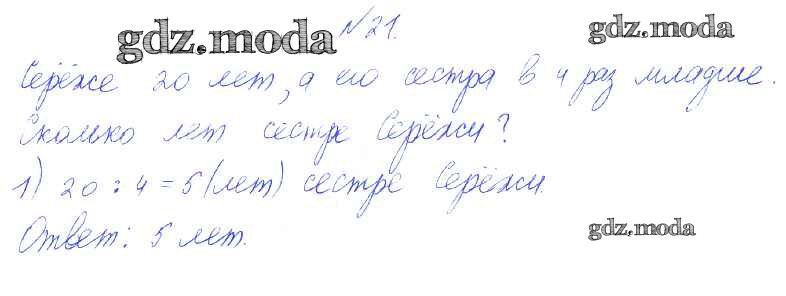 №21.
gdz.moda
gdz.moda
Серёже 20 лет, а его сестра в 4 раз младше.
Сколько лет сестре Серёжи?
1) 20 : 4 = 5 (лет) сестре Серёжи.
Ответ: 5 лет.
gdz.moda